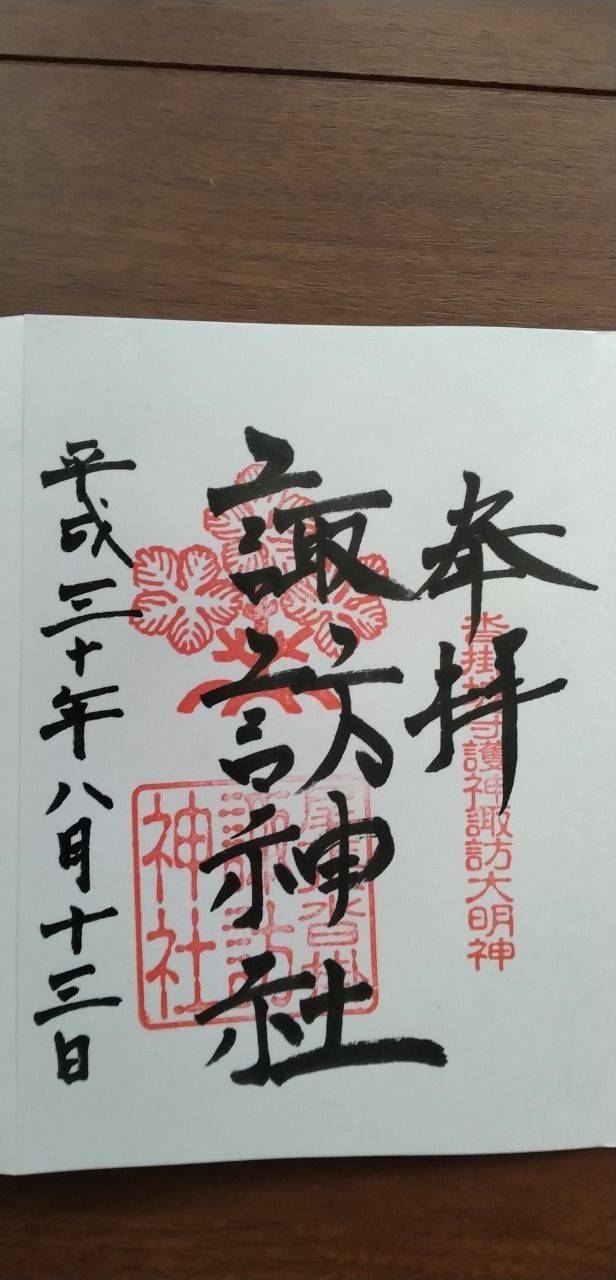 奉拝
沓掛城守護神諏訪大明神
諏訪神社
尾張沓掛
諏訪
神社
平成三十年八月十三日